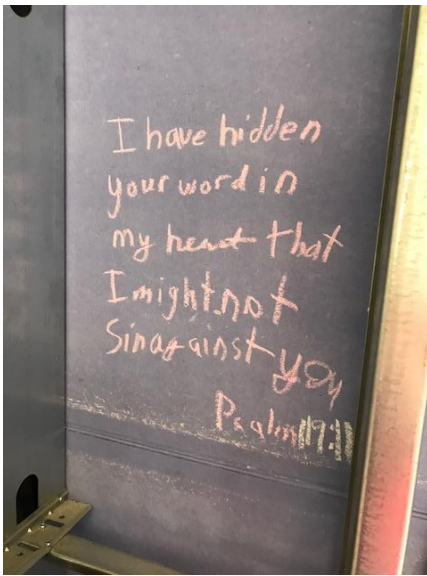 I have hidden
your word in
my heart that
I might not
Sin against you
Psalm 119:11